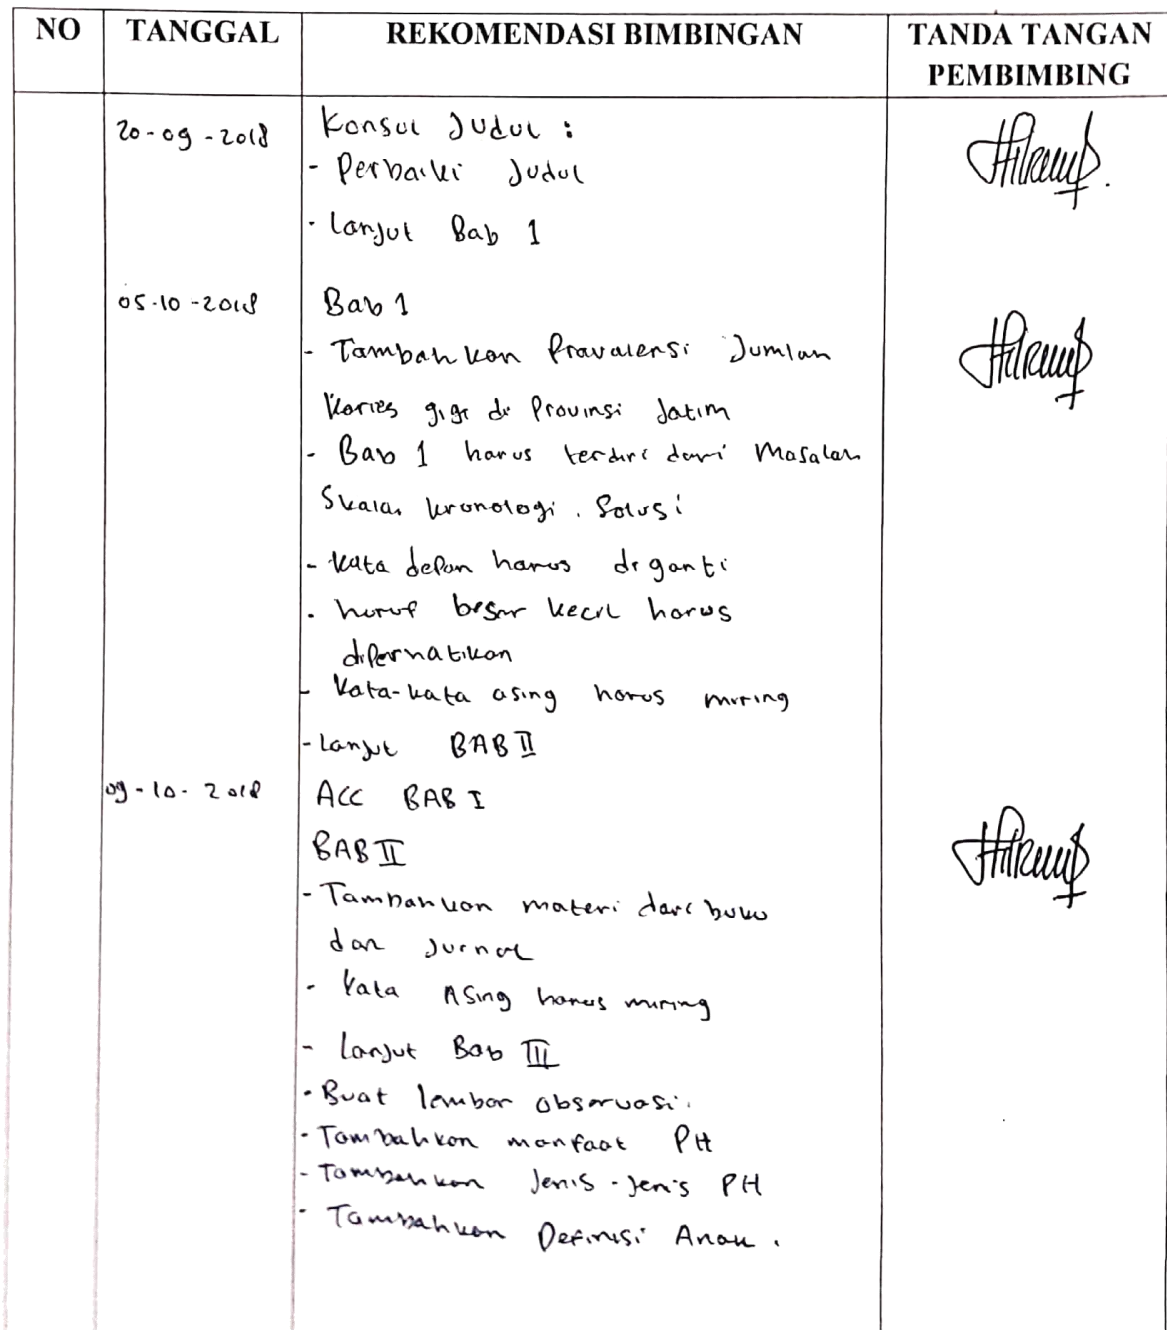 NO TANGGAL REKOMENDASI BIMBINGAN TANDA TANGAN
PEMBIMBING
20-09-2018 Konsul Judul :
- Perbaiki Judul
- Lanjut Bab 1
05-10-2018 Bab 1
- Tambahkan Pravalensi Jumlah
Karies gigi di Provinsi Jatim
- Bab 1 harus terdiri dari Masalah
Skala, kronologi. Solusi
- kata depan harus di ganti
. huruf besar kecil harus
diperhatikan
- Kata-kata asing harus miring
- Lanjut BAB II
09-10-2018 ACC BAB I
BAB II
- Tambahkan materi dari buku
dan Jurnal
- Kata Asing harus miring
- Lanjut Bab III
- Buat lembar observasi.
- Tambahkan manfaat PH
- Tambahkan Jenis-Jenis PH
- Tambahkan Definisi Anak.